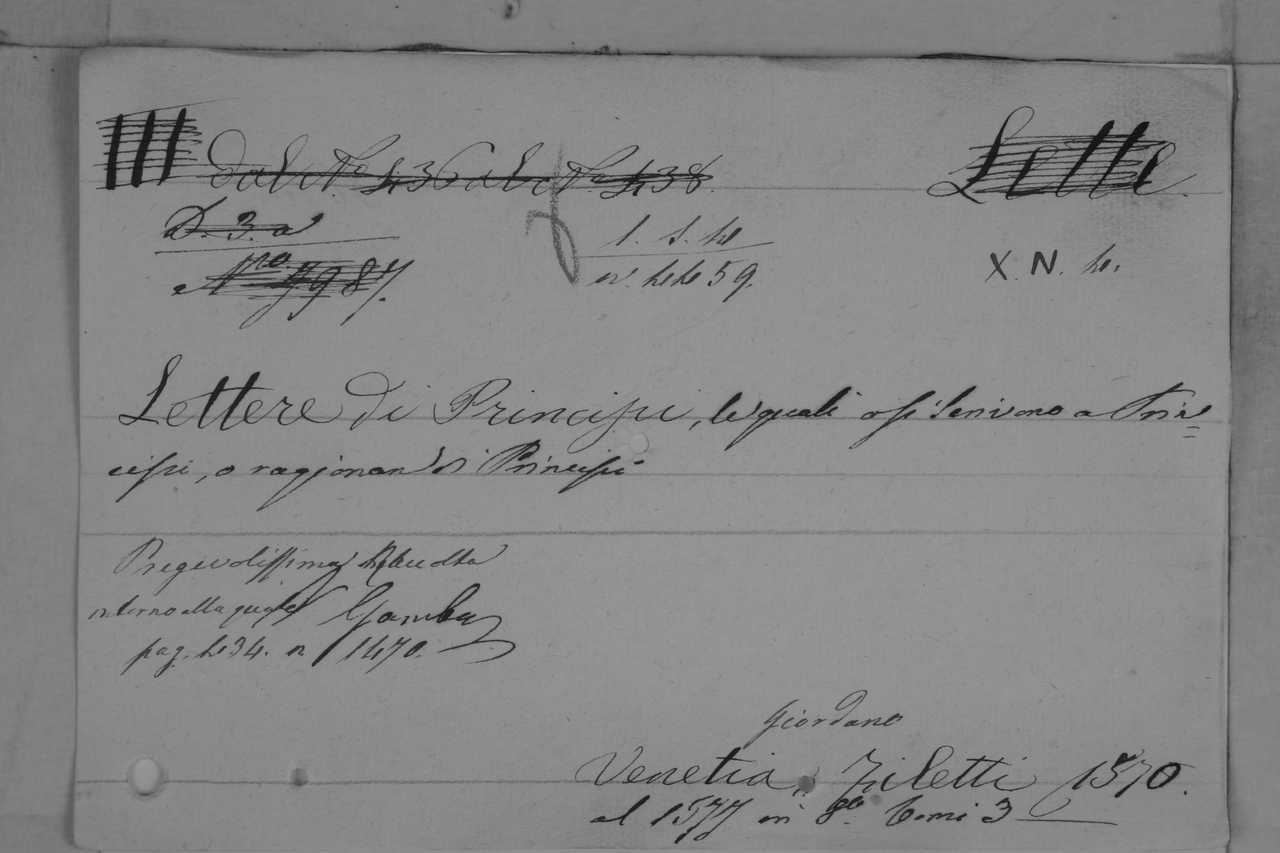 III dal N.º 436 al N.º 438. Lette.
D. 3. a
Nro 7987.
1. 5. 4
n. 4459.
X. N. 4.
Lettere di Principi, le quali o si scrivono a Prin=
cipi, o ragionan di Principi
Pregevolissima Raccolta
intorno alla quale Gamba
pag. 434. n 1470.
Giordano
Venetia, Ziletti 1570.
al 1577 in 8º Tomi 3